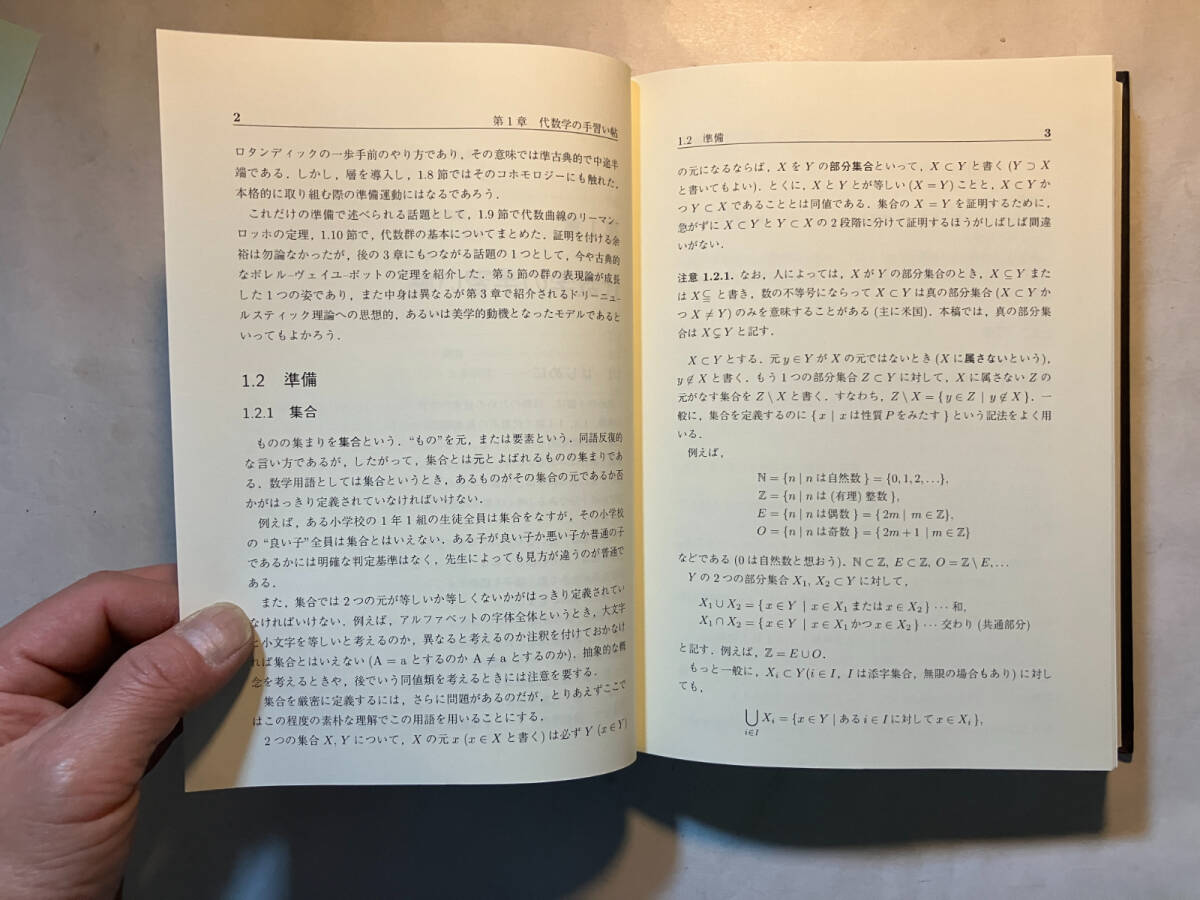 2
第1章 代数学の手習い帖
ロタンディックの一歩手前のやり方であり，その意味では準古典的で中途半
端である．しかし，層を導入し，1.8 節ではそのコホモロジーにも触れた，
本格的に取り組む際の準備運動にはなるであろう．
これだけの準備で述べられる話題として，1.9 節で代数曲線のリーマン–
ロッホの定理，1.10 節で，代数群の基本についてまとめた．証明を付ける余
裕は勿論なかったが，後の 3 章にもつながる話題の 1 つとして，今や古典的
なボレル–ヴェイユ–ボットの定理を紹介した．第 5 節の群の表現論が成長
した 1 つの姿であり，また中身は異なるが第 3 章で紹介されるドリーニュ–
ルスティック理論への思想的，あるいは美学的動機となったモデルであると
いってもよかろう．
1.2 準備
1.2.1 集合
ものの集まりを集合という．“もの”を元，または要素という．同語反復的
な言い方であるが，したがって，集合とは元とよばれるものの集まりであ
る．数学用語としては集合というとき，あるものがその集合の元であるか否
かがはっきり定義されていなければいけない．
例えば，ある小学校の 1 年 1 組の生徒全員は集合をなすが，その小学校
の “良い子” 全員は集合とはいえない．ある子が良い子か悪い子か普通の子
であるかには明確な判定基準はなく，先生によっても見方が違うのが普通で
ある．
また，集合では 2 つの元が等しいか等しくないかがはっきり定義されてい
なければいけない．例えば，アルファベットの字体全体というとき，大文字
と小文字を等しいと考えるのか，異なると考えるのか注釈を付けておかなけ
れば集合とはいえない (A = a とするのか A ≠ a とするのか)．抽象的な概
念を考えるときや，後でいう同値類を考えるときには注意を要する．
集合を厳密に定義するには，さらに問題があるのだが，とりあえずここで
はこの程度の素朴な理解でこの用語を用いることにする．
2 つの集合 X, Y について，X の元 x (x ∈ X と書く) は必ず Y (x ∈ Y)
1.2 準備
3
の元になるならば，X を Y の部分集合といって，X ⊂ Y と書く (Y ⊃ X
と書いてもよい)．とくに，X と Y とが等しい (X = Y) ことと，X ⊂ Y か
つ Y ⊂ X であることとは同値である．集合の X = Y を証明するために，
急がずに X ⊂ Y と Y ⊂ X の 2 段階に分けて証明するほうがしばしば間違
いがない．
注意 1.2.1. なお，人によっては，X が Y の部分集合のとき，X ⊆ Y また
は X ≦ と書き，数の不等号にならって X ⊂ Y は真の部分集合 (X ⊂ Y か
つ X ≠ Y) のみを意味することがある (主に米国)．本稿では，真の部分集
合は X ⊊ Y と記す．
X ⊂ Y とする．元 y ∈ Y が X の元ではないとき (X に属さないという)，
y ∉ X と書く．もう 1 つの部分集合 Z ⊂ Y に対して，X に属さない Z の
元がなす集合を Z \ X と書く．すなわち，Z \ X = {y ∈ Z | y ∉ X}．一
般に，集合を定義するのに { x | x は性質 P をみたす } という記法をよく用
いる．
例えば，
ℕ = {n | n は自然数 } = {0, 1, 2, . . .},
ℤ = {n | n は (有理) 整数 },
E = {n | n は偶数 } = { 2m | m ∈ ℤ},
O = {n | n は奇数 } = { 2m + 1 | m ∈ ℤ}
などである (0 は自然数と想おう)．ℕ ⊂ ℤ, E ⊂ ℤ, O = ℤ \ E, . . .
Y の 2 つの部分集合 X₁, X₂ ⊂ Y に対して，
X₁ ∪ X₂ = { x ∈ Y | x ∈ X₁ または x ∈ X₂ } ··· 和,
X₁ ∩ X₂ = { x ∈ Y | x ∈ X₁ かつ x ∈ X₂ } ··· 交わり (共通部分)
と記す．例えば，ℤ = E ∪ O．
もっと一般に，Xᵢ ⊂ Y (i ∈ I, I は添字集合，無限の場合もあり) に対し
ても，
⋃ Xᵢ = {x ∈ Y | ある i ∈ I に対して x ∈ Xᵢ },
i∈I